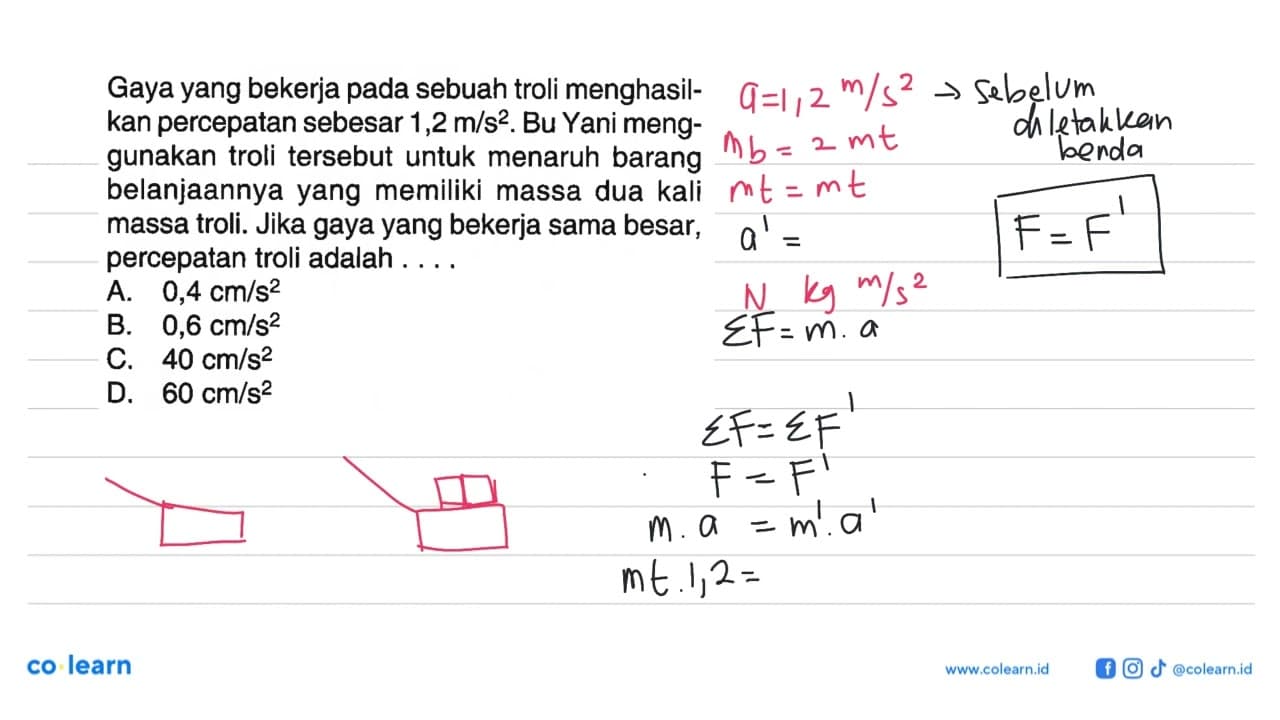 Gaya yang bekerja pada sebuah troli menghasil-
kan percepatan sebesar 1,2 m/s². Bu Yani meng-
gunakan troli tersebut untuk menaruh barang
belanjaannya yang memiliki massa dua kali
massa troli. Jika gaya yang bekerja sama besar,
percepatan troli adalah . . . .
A. 0,4 cm/s²
B. 0,6 cm/s²
C. 40 cm/s²
D. 60 cm/s²
a=1,2 m/s² → sebelum
diletakkan
benda
mb = 2 mt
mt = mt
a' =
F = F'
N kg m/s²
ΣF = m. a
ΣF = ΣF'
F = F'
m. a = m'. a'
mt. 1,2 =
co·learn
www.colearn.id
@colearn.id